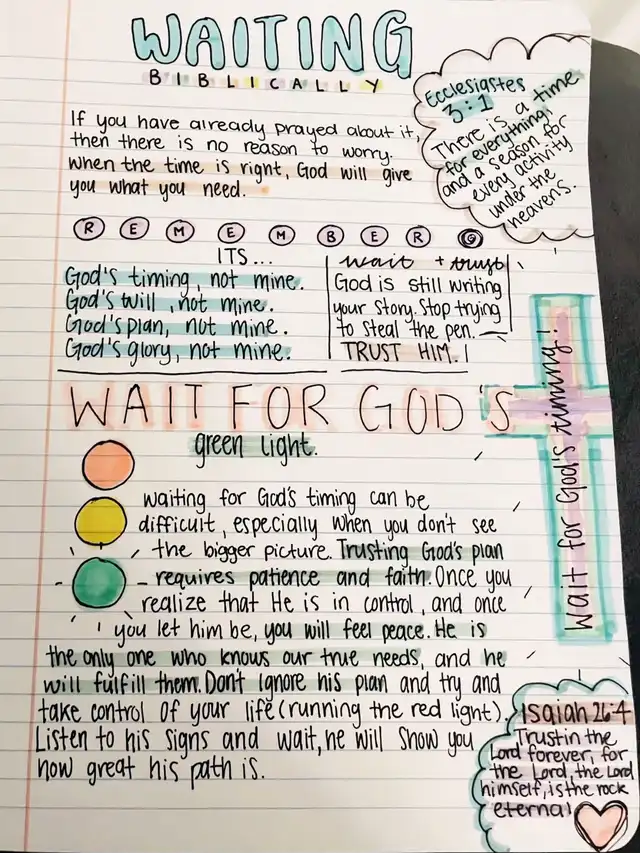 WAITING
BIBLICALLY
Ecclesiastes
3:1
There is a time
for everything,
and a season for
every activity
under the
heavens.
If you have already prayed about it,
then there is no reason to worry.
When the time is right, God will give
you what you need.
REMEMBER
ITS...
God's timing, not mine.
God's will, not mine.
God's plan, not mine.
God's glory, not mine.
wait + trust
God is still writing
your story. Stop trying
to steal the pen.
TRUST HIM.
WAIT FOR GOD'S
green light.
wait for God's timing!
waiting for God's timing can be
difficult, especially when you don't see
the bigger picture. Trusting God's plan
requires patience and faith. Once you
realize that He is in control, and once
you let him be, you will feel peace. He is
the only one who knows our true needs, and he
will fulfill them. Don't ignore his plan and try and
take control of your life (running the red light).
Listen to his signs and wait, he will show you
how great his path is.
Isaiah 26:4
Trust in the
Lord forever, for
the Lord, the Lord
himself, is the rock
eternal